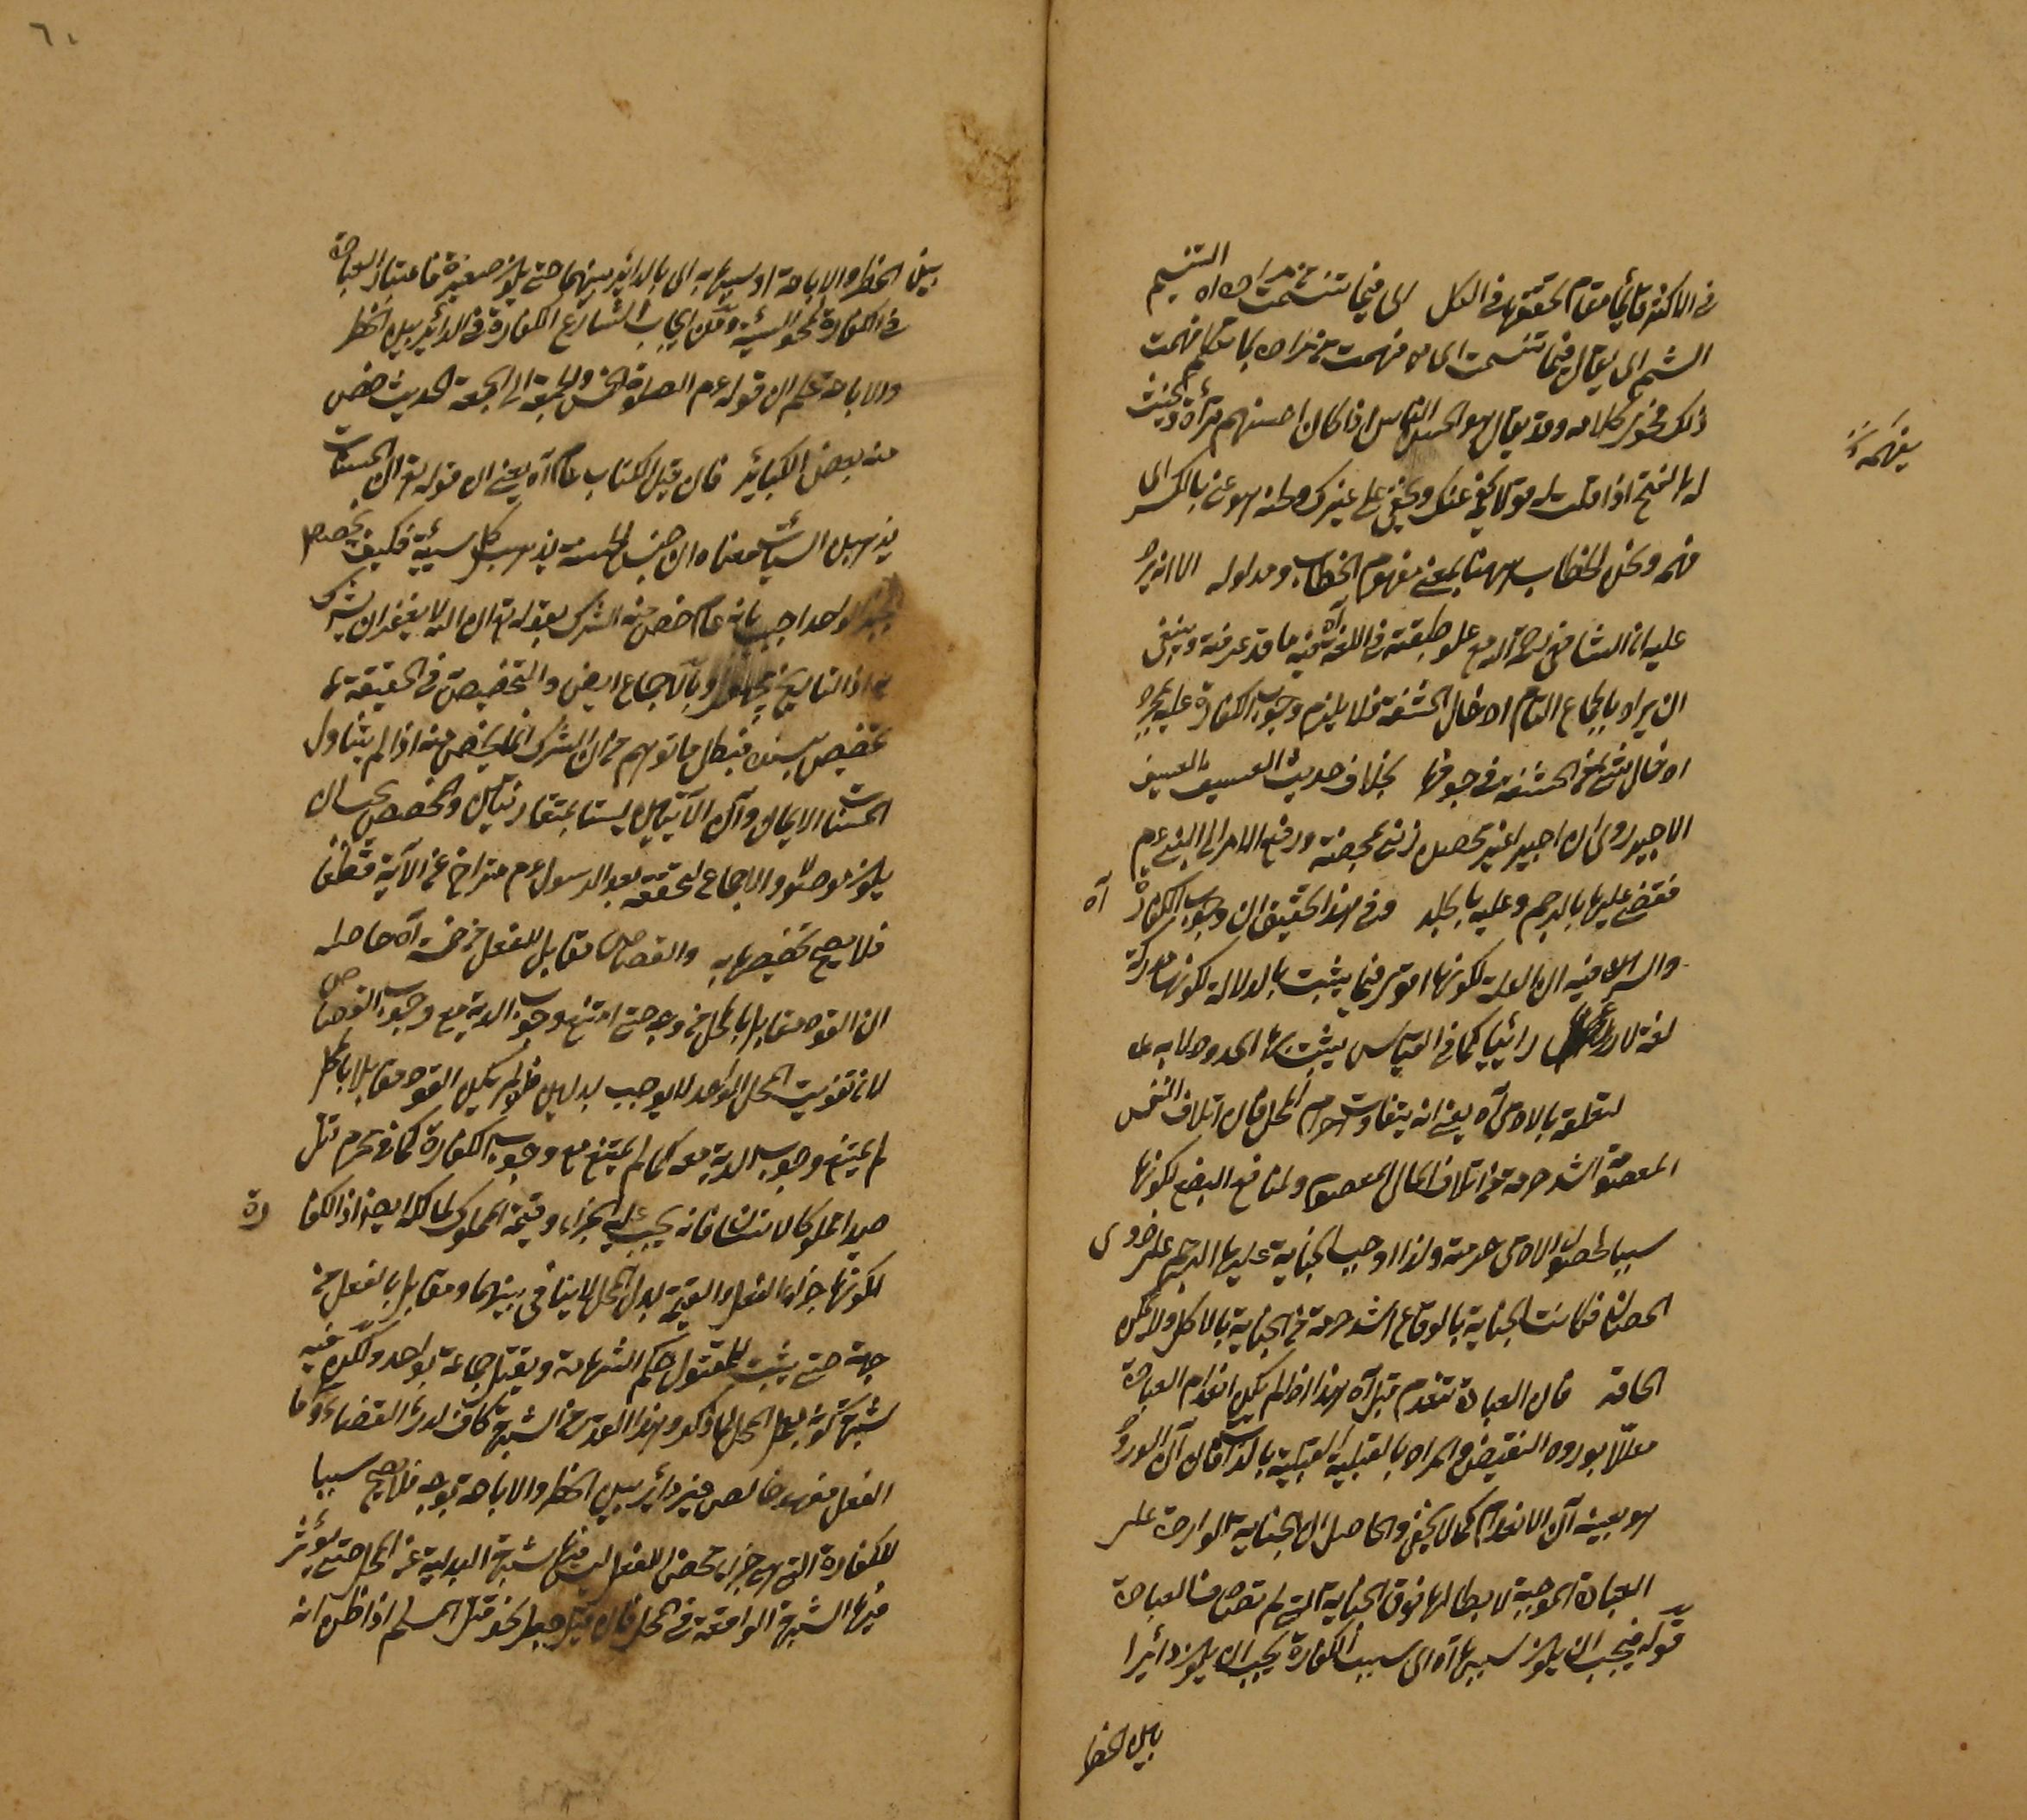 في الاكثر قائما مقام تحققها في الكل اي فيما تنسمت من مراده التنسيم
الشم اي يقال فيما تنسمت اي ما فهمت من مراده بما تكلم فهمت
ذلك من فحوى كلامه وقد يقال هو الحسن الناس اذا كان احسنهم قرأة ولحنت
له بالفتح اذا قلت له قولا يفهم عنك ويخفى على غيرك ولحنه هو عني بالكسر اى
يفهمه
فهمه ولحن الخطاب ههنا بمعنى مفهوم الخطاب ومدلوله الا انه يرد
عليه ان الشافعي رحمه الله مع علو طبقته في اللغة آه فيه ما قد عرفته وينبغي
ان يراد بالجماع التام ادخال الحشفة فلا يلزم وجوب الكفارة عليه بمجرد
ادخال شئ من الحشفة في جوفها بخلاف حديث العسيف العسيف
الاجير روى ان اجيرا غير محصن زنى بمحصنة ورفع الامر الى النبي عم
فقضى عليها بالرجم وعليه بالجلد وفي هذا تحقيق ان وجوب الكفارة آه
والسر فيه ان العلة لكونها اقوى فيما يثبت بالدلالة لكونها مدركة
لغة لا رأيا كما في القياس يثبت بها الحدود لا به
لتعلقه بالآدمى آه يعني انه يتفاوت احرام المحل فان اتلاف النفس
المعصومة اشد حرمة من اتلاف المال المعصوم ولمنافع البضع لكونها
سببا لحصول الآدمى حرمة ولذا اوجب الجناية عليها الرجم على ذوى
الحصان فكانت الجناية بالوقاع اشد حرمة من الجناية بالاكل ولا يمكن
الحاقه فان العبادة تنعدم قبل آه هذا اذا لم يكن انعدام العبادة
معللا بورود النقيض والمراد بالقبلية القبلية بالذات فان آن الورود
هو بعينه آن الانعدام كما لا يخفى والحاصل ان الجناية الواردة على
العبادة الموجبة لابطالها فوق الجناية التي لم تصادف العبادة
قوله فيجب ان يكون سببها آه اى سبب الكفارة يجب ان يكون دائرا
بين الحظر
٦٠
بين الحظر والاباحة او سببها به اى بالدائر بينهما حتى يكون صغيرة فاعتبار العبادة
في الكفارة لمحو السيئة ومن ايجاب الشارع الكفارة في الدائر بين الحظر
والاباحة علم ان قوله عم الصلوة الخمس والجمعة الى الجمعة الحديث خص
منه بعض الكبائر فان قيل الكتاب عام آه يعني ان قوله تع ان الحسنات
يذهبن السيئات معناه ان جنس الحسنة يذهب كل سيئة فكيف يخصص
بخبر الواحد اجيب بانه عام خص منه الشرك بقوله تع ان الله لا يغفر ان يشرك
به اذ التاريخ مجهول وبالاجماع ايض والتخصيص في الحقيقة
تخصيص بسنده فبطل ما توهم من ان الشرك انما يخص منه اذا لم يتناول
الحسنات الايمان وآن الآيتين ليستا بمتقارنتين والمخصص يجب ان
يكون موصولا والاجماع لتحققه بعد الرسول عم متراخ عن الآية قطعا
فلا يصح تخصيصها به والقصاص مقابل للفعل من وجه آه حاصله
ان القود مقابل بالمحل من وجه حتى امتنع وجوب الدية مع وجوب القصاص
لان تفويت المحل الواحد لا يوجب بدلين فلو لم يكن القود مقابلا بالمحل
لم يمتنع وجوب الدية معه كما لم يمتنع مع وجوب الكفارة كما في محرم قتل
صيدا مملوكا لانسان فانه يجب عليه الجزاء وقيمة المملوك لمالكه ايض اذ الكفارة
لكونها جزاء الفعل والقيمة بدل المحل لا يتنافى بينهما ومقابل بالفعل من
جهة حتى يثبت للمقتول حكم الشهادة ويقتل جماعة بواحد ولكن فيه
شبهة كونه بدل المحل لما ذكر وهذا القدر من الشبهة كاف لدرء القصاص واما
الفعل فهو خالص غير دائر بين الحظر والاباحة بوجه فلا يصح سببا
للكفارة التي هي جزاء محض للفعل ليس فيها شبهة البدلية عن المحل حتى يؤثر
فيها الشبهة الواقعة في المحل فان قيل جعل نحو قتل المسلم اذا ظن انه